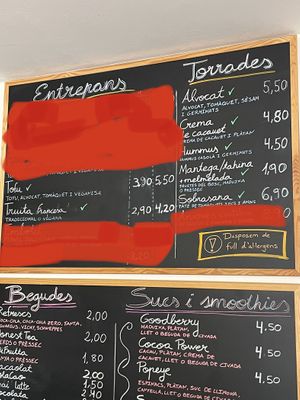 Entrepans
Tofu ✓
TOFU, ALVOCAT, TOMÀQUET I VEGANESA
3,90 5,50
Truita francesa ✓
TRADICIONAL O VEGANA
2,90 4,20
Torrades
Alvocat ✓ 5,50
ALVOCAT, TOMÀQUET, SÈSAM
I GERMINATS
Crema ✓ 4,80
de cacauet
CREMA DE CACAUET I PLÀTAN
Hummus ✓ 4,50
HUMMUS CASOLÀ I GERMINATS
Mantega/tahina
+melmelada ✓ 1,90
FRUITES DEL BOSC, MADUIXA
O PRÉSSEC
Sobrasana ✓ 6,90
Disposem de
full d'al·lèrgens
Begudes
Refrescs 2,00
COCA-COLA, COCA-COLA ZERO, FANTA,
AQUARIUS, VICHY, SCHWEPPES
Tea 2,00
O PRÉSSEC
1,80
2,00
latte 1,50
2,40
Sucs i smoothies
Goodberry 4.50
MADUIXA, PLÀTAN,
LLET O BEGUDA DE CIVADA
Cocoa Power 4.50
CACAU, PLÀTAN, CREMA DE
CACAUET, LLET O BEGUDA DE CIVADA
Popeye 4.50
ESPINACS, PLÀTAN, SUC DE LLIMONA,
CANYELLA, LLET O BEGUDA DE CIVADA